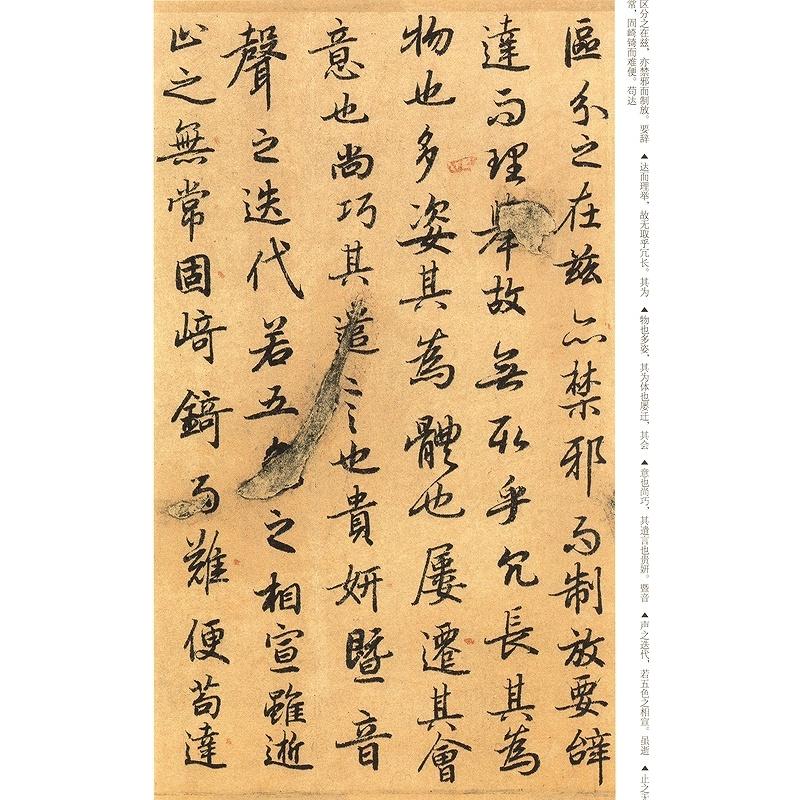 区分之在兹，亦禁邪而制放。要辞 ▲ 达而理举，故无取乎冗长。其为 ▲ 物也多姿，其为体也屡迁，其会 ▲ 意也尚巧，其遣言也贵妍。暨音 ▲ 声之迭代，若五色之相宣。虽逝 ▲ 止之无
常，固崎锜而难便。苟达
區分之在茲亦禁邪而制放要辭
達而理舉故無取乎冗長其為
物也多姿其為體也屢遷其會
意也尚巧其遣言也貴妍暨音
聲之迭代若五色之相宣雖逝
止之無常固崎錡而難便苟達